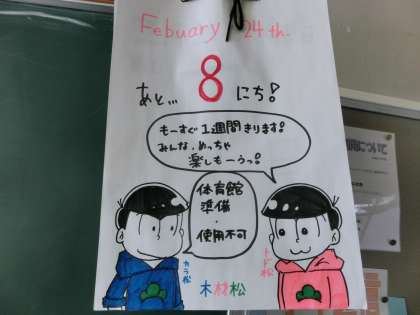 Febuary 24th.
あと... 8 にち!
もーすぐ1週間きります!
みんな、めっちゃ
楽しもーうっ!
体育館
準備
・
使用不可
カラ松
トド松
木材松
について